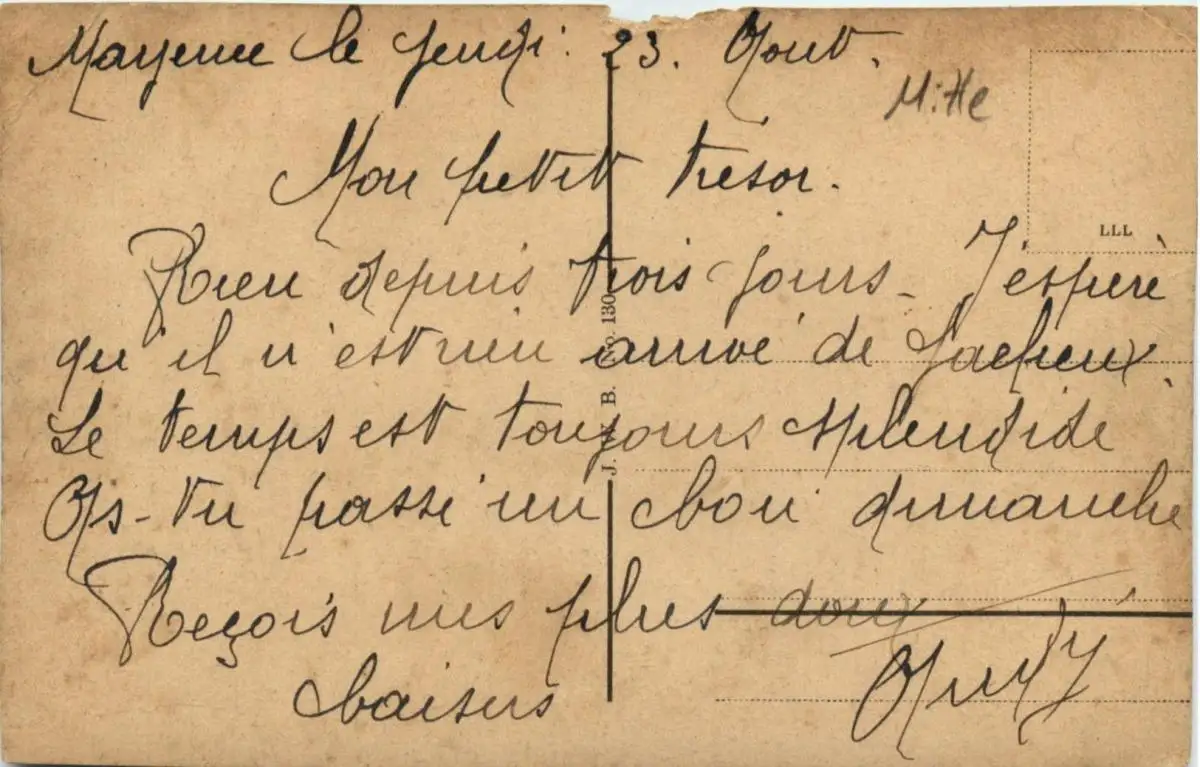 Mayence le Jeudi 23. Aout.
Mon petit trésor.
Rien depuis trois jours - J'espère
qu'il n'est rien arrivé de facheux.
Le temps est toujours splendide
As-tu passé un bon dimanche
Reçois mes plus doux
baisers
LLL